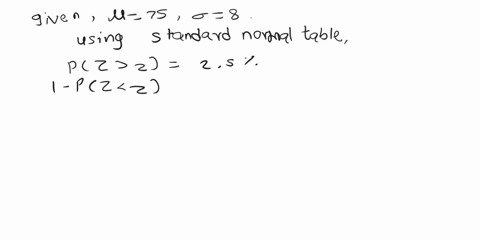 given, μ=75, σ=8.
using standard normal table,
P(Z>z) = 2.5%.
1-P(Z<z)